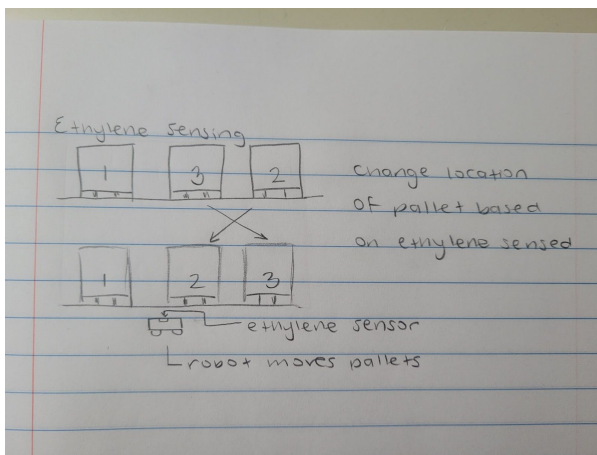 Ethylene sensing
1 3 2
change location
of pallet based
on ethylene sensed
1 2 3
ethylene sensor
robot moves pallets